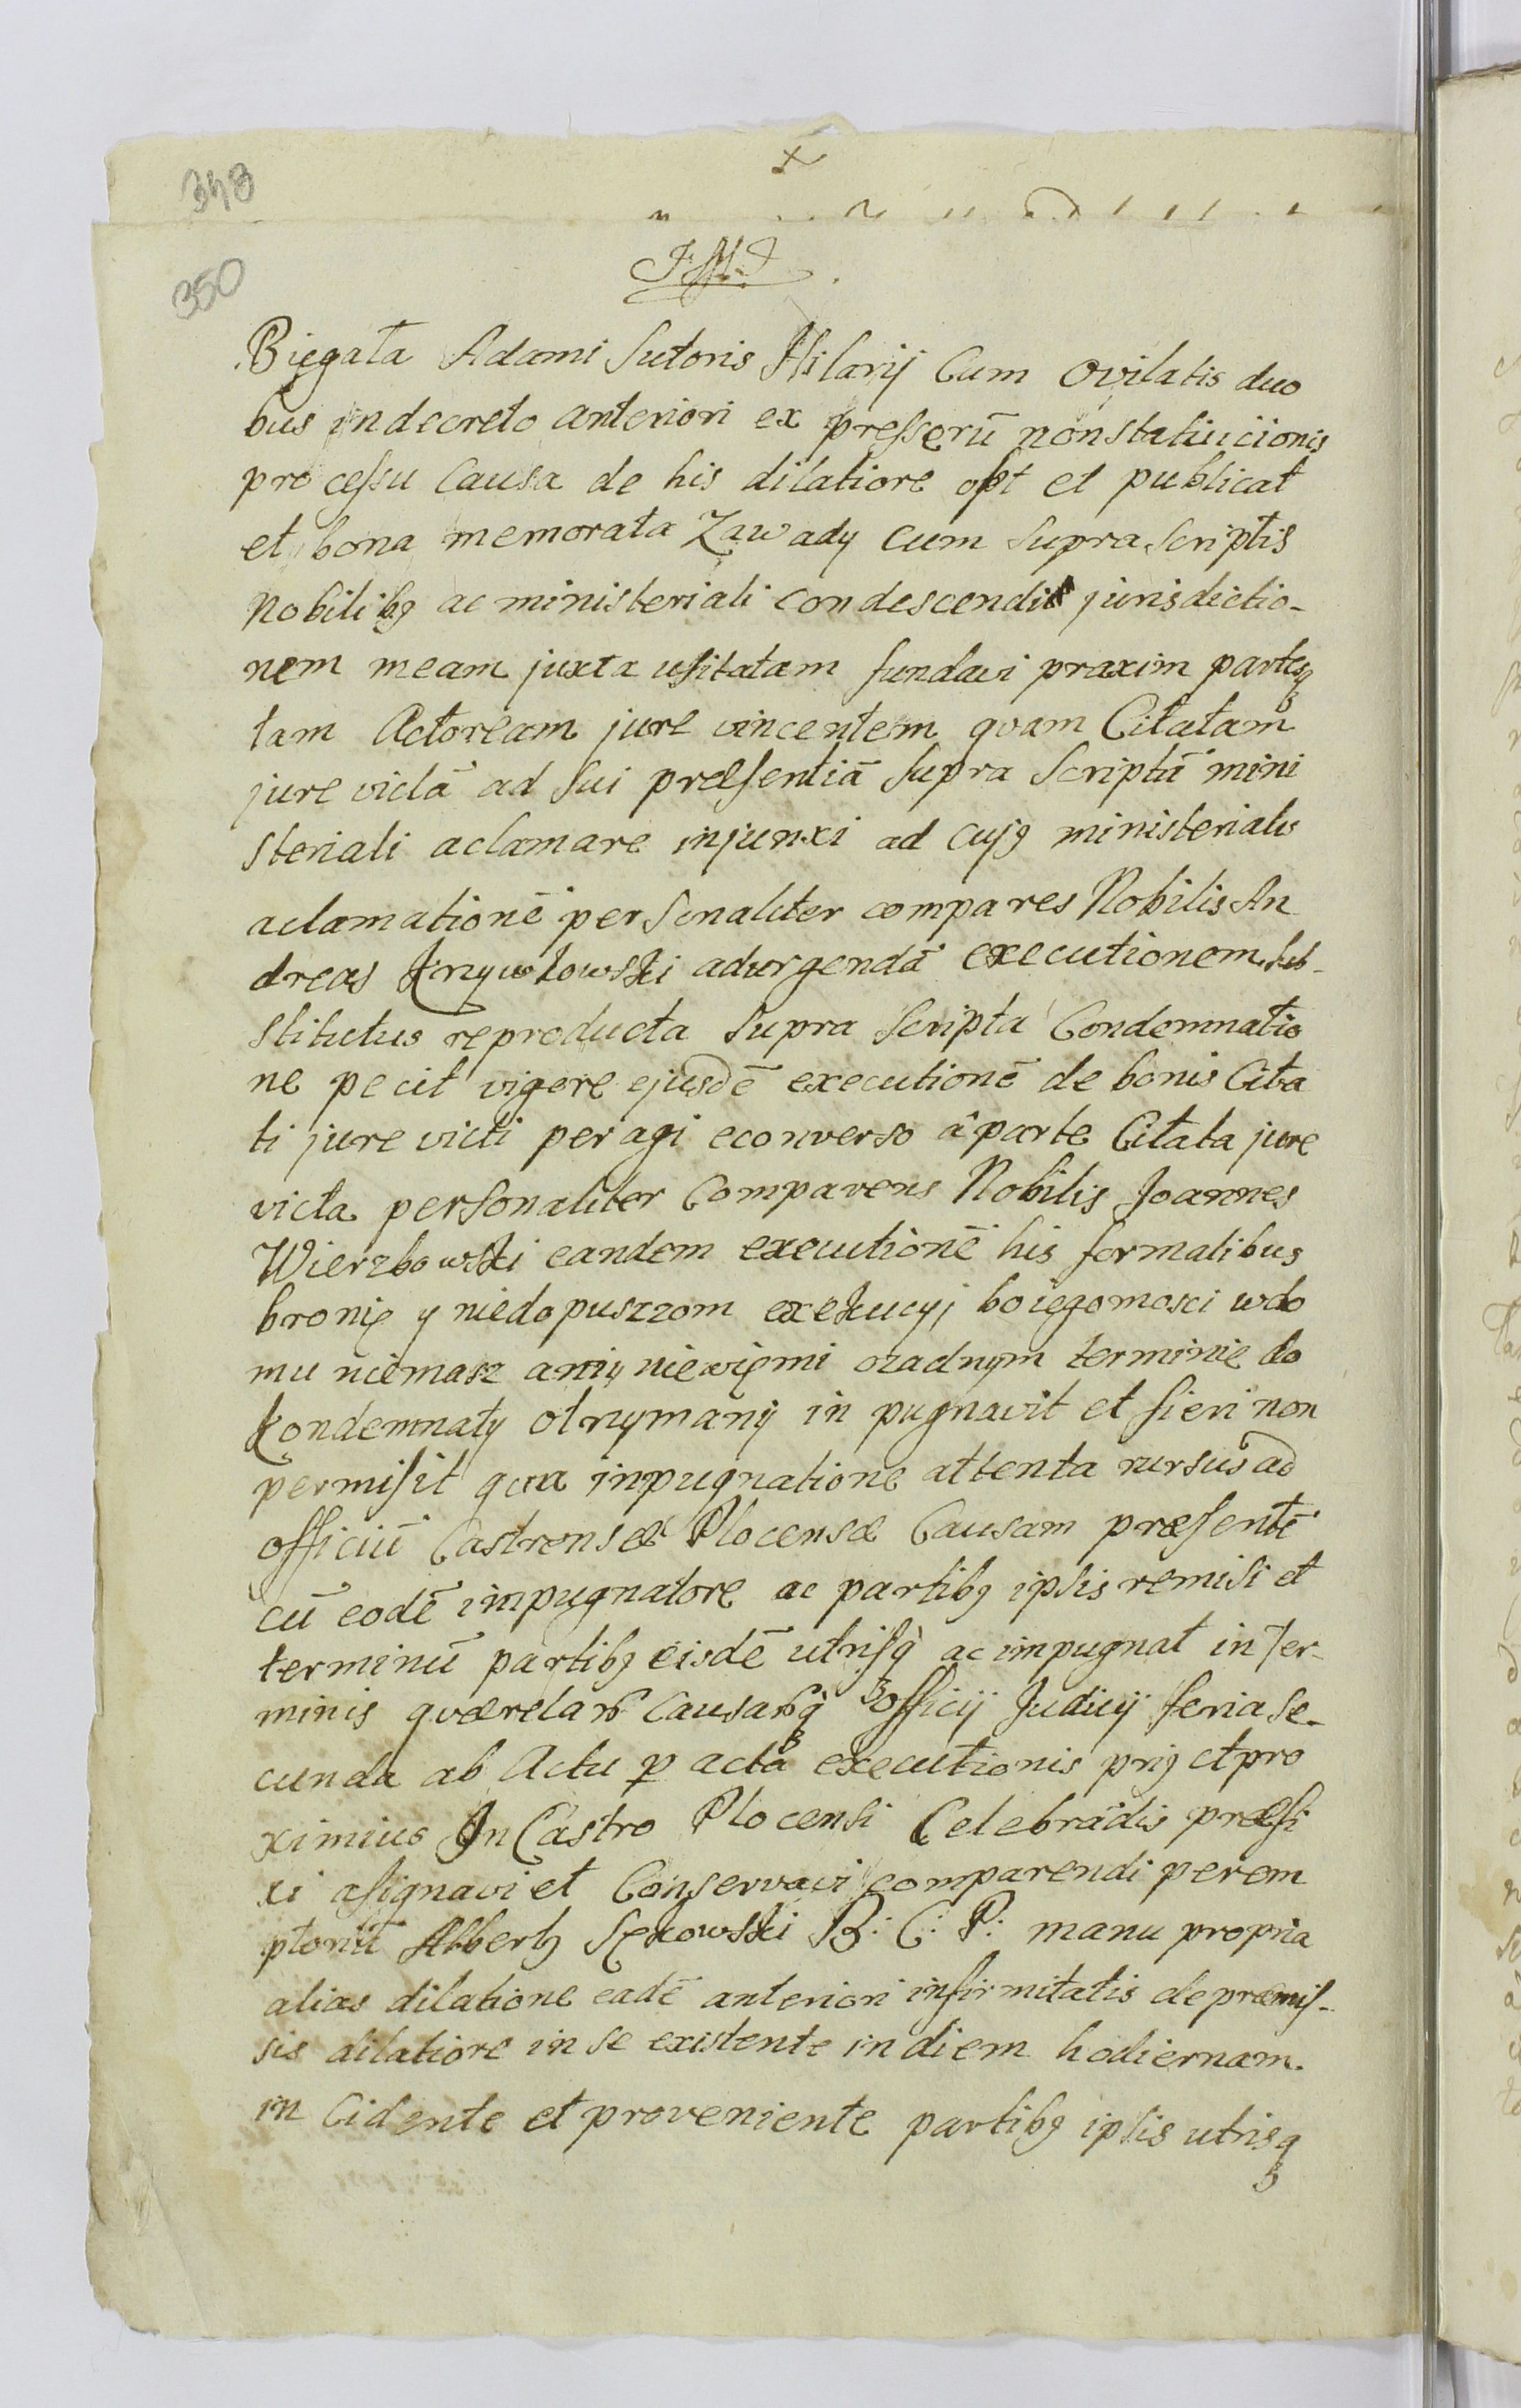 348
350
Biegata Adami Sutoris Hilarij Cum Ovilatis duo
bus in decreto anteriori ex presserū nonstatiucionis
pro cessu Causa de his dilatiore opt et publicat
et bona memorata Zawady cum supra scriptis
Nobilibq ac ministeriali condescendit jurisdictio-
nem meam juxta usitatam fundavi praxim partesq
tam Actoream jure vincentem qvam Citatam
jure victā ad sui præsentiā supra scriptū mini
steriali aclamare injunxi ad cujq ministerialis
aclamationē personaliter compares Nobilis An
dreas adurgendā executionem sub-
stitutus reproducta supra scripta Condemnatio
ne pecit vigore ejusdē executionē de bonis Cita
ti jure victi per agi econverso â parte Citata jure
victa personaliter Comparens Nobilis Joannes
Wierzbowski eandem executionē his formalibus
bronię y niedopuszzom exekucyi bo iegomosci wdo
mu niemasz aniy niewięmi ozadnym terminie do
kondemnaty otrzymaniy in pugnavit et fieri non
permisit qua inpugnatione attenta rursus ad
officiū Castrense Plocense Causam præsentē
cū eodē impugnatore ac partibq ipsis remisi et
terminū partibq eisdē utrisq ac impugnat in Ter-
minis qværelar Causarq officij Judicij feria se-
cunda ab Actu p acta executionis priq et pro
ximius In Castro Plocensi Celebrādis præfi
xi asignavi et Conservavi comparendi perem
ptoriū Albertq Sękowski B: C: P: manu propria
alias dilatione eadē anteriori infirmitatis de præmis-
sis dilatiore in se existente in diem hodiernam.
in Cidente et proveniente partibq ipsis utrisq